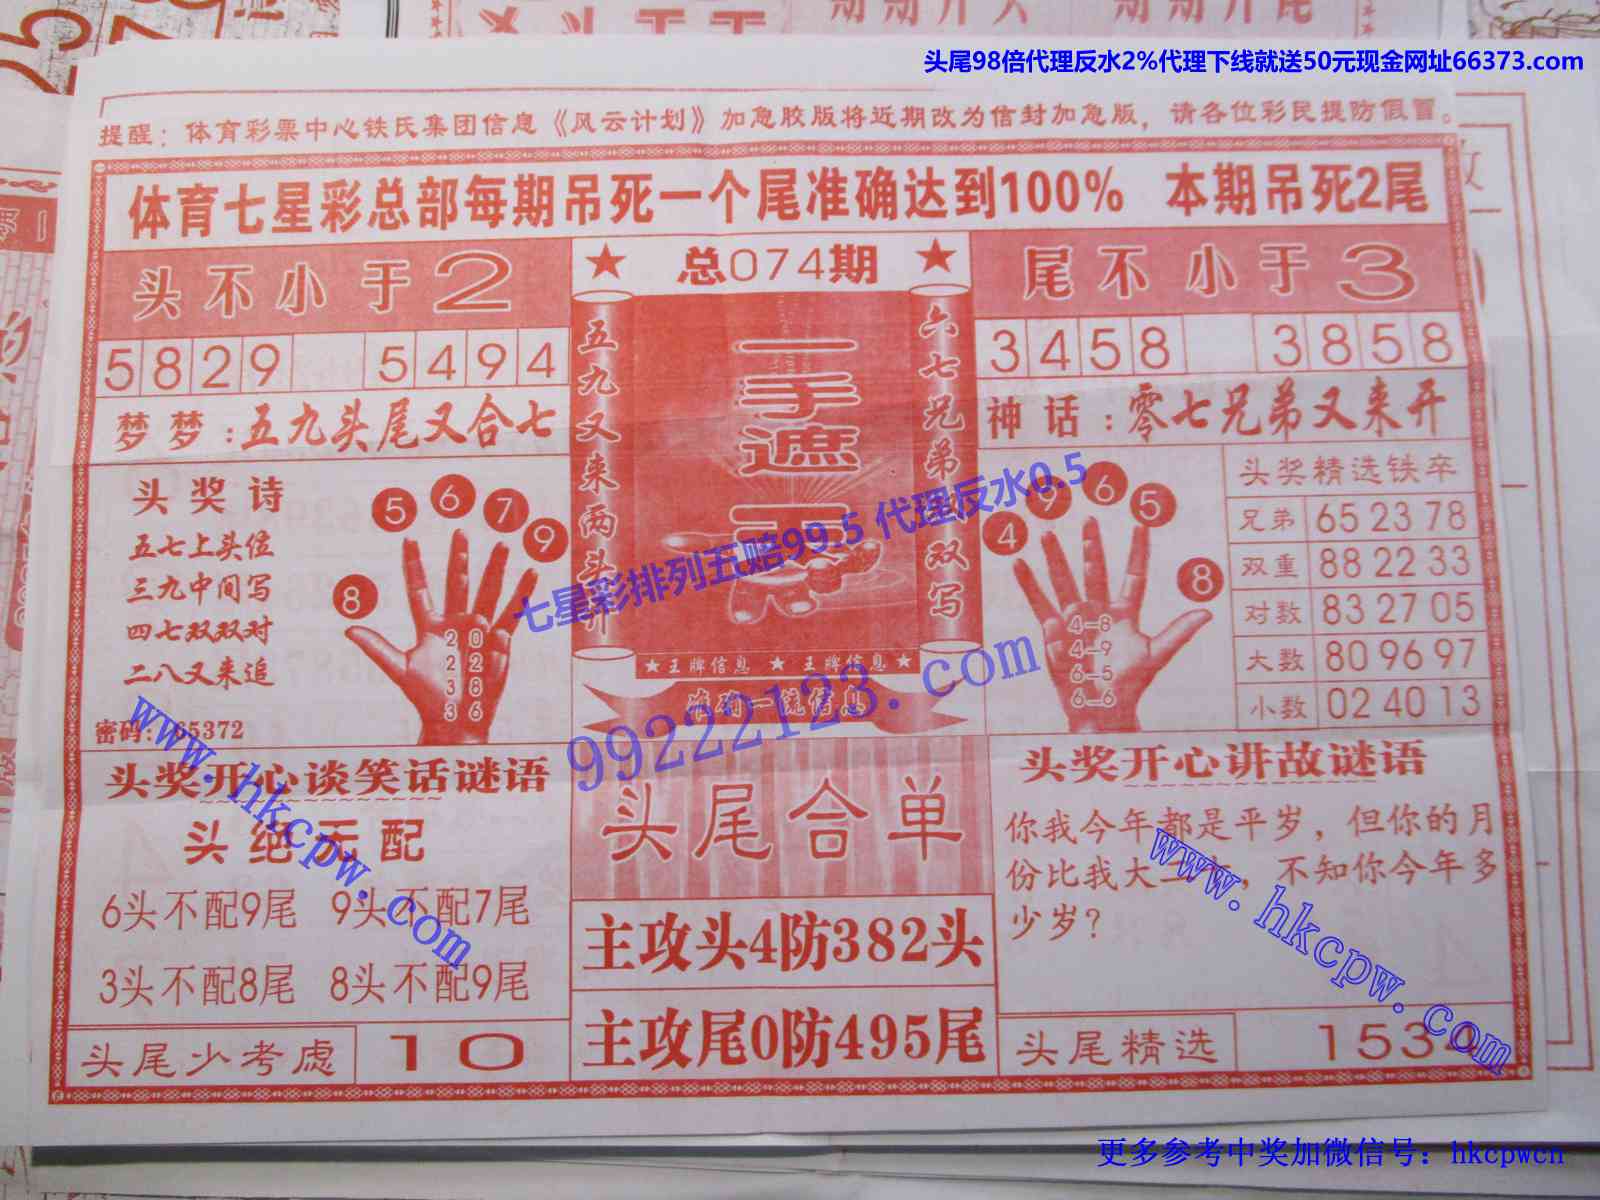 头尾98倍代理反水2%代理下线就送50元现金网址66373.com
提醒：体育彩票中心铁氏集团信息《风云计划》加急胶版将近期改为信封加急版，请各位彩民提防假冒。
体育七星彩总部每期吊死一个尾准确达到100% 本期吊死2尾
头不小于2
★ 总074期 ★
尾不小于3
5829 5494
3458 3858
梦梦：五九头尾又合七
神话：零七兄弟又来开
五九又来两头开
一手遮天
六七兄弟
双写
头奖诗
五七上头位
三九中间写
四七双双对
二八又来追
密码：
65372
5 6 7 9 8
2 0
2 2
3 8
3 6
4 9 6 5 8
4-8
4-9
6-5
6-6
头奖精选铁卒
兄弟 65 23 78
双重 88 22 33
对数 83 27 05
大数 80 96 97
小数 02 40 13
★王牌信息 ★ 王牌信息★
准确一流信息
七星彩排列五赔99.5 代理反水0.5
99222123.com
头奖开心谈笑话谜语
头绝不配
6头不配9尾 9头不配7尾
3头不配8尾 8头不配9尾
头尾少考虑 10
头尾合单
主攻头4防382头
主攻尾0防495尾
头奖开心讲故谜语
你我今年都是平岁，但你的月
份比我大二，不知你今年多
少岁？
头尾精选 153
www.hkcpw.com
www.hkcpw.com
更多参考中奖加微信号：hkcpwcn